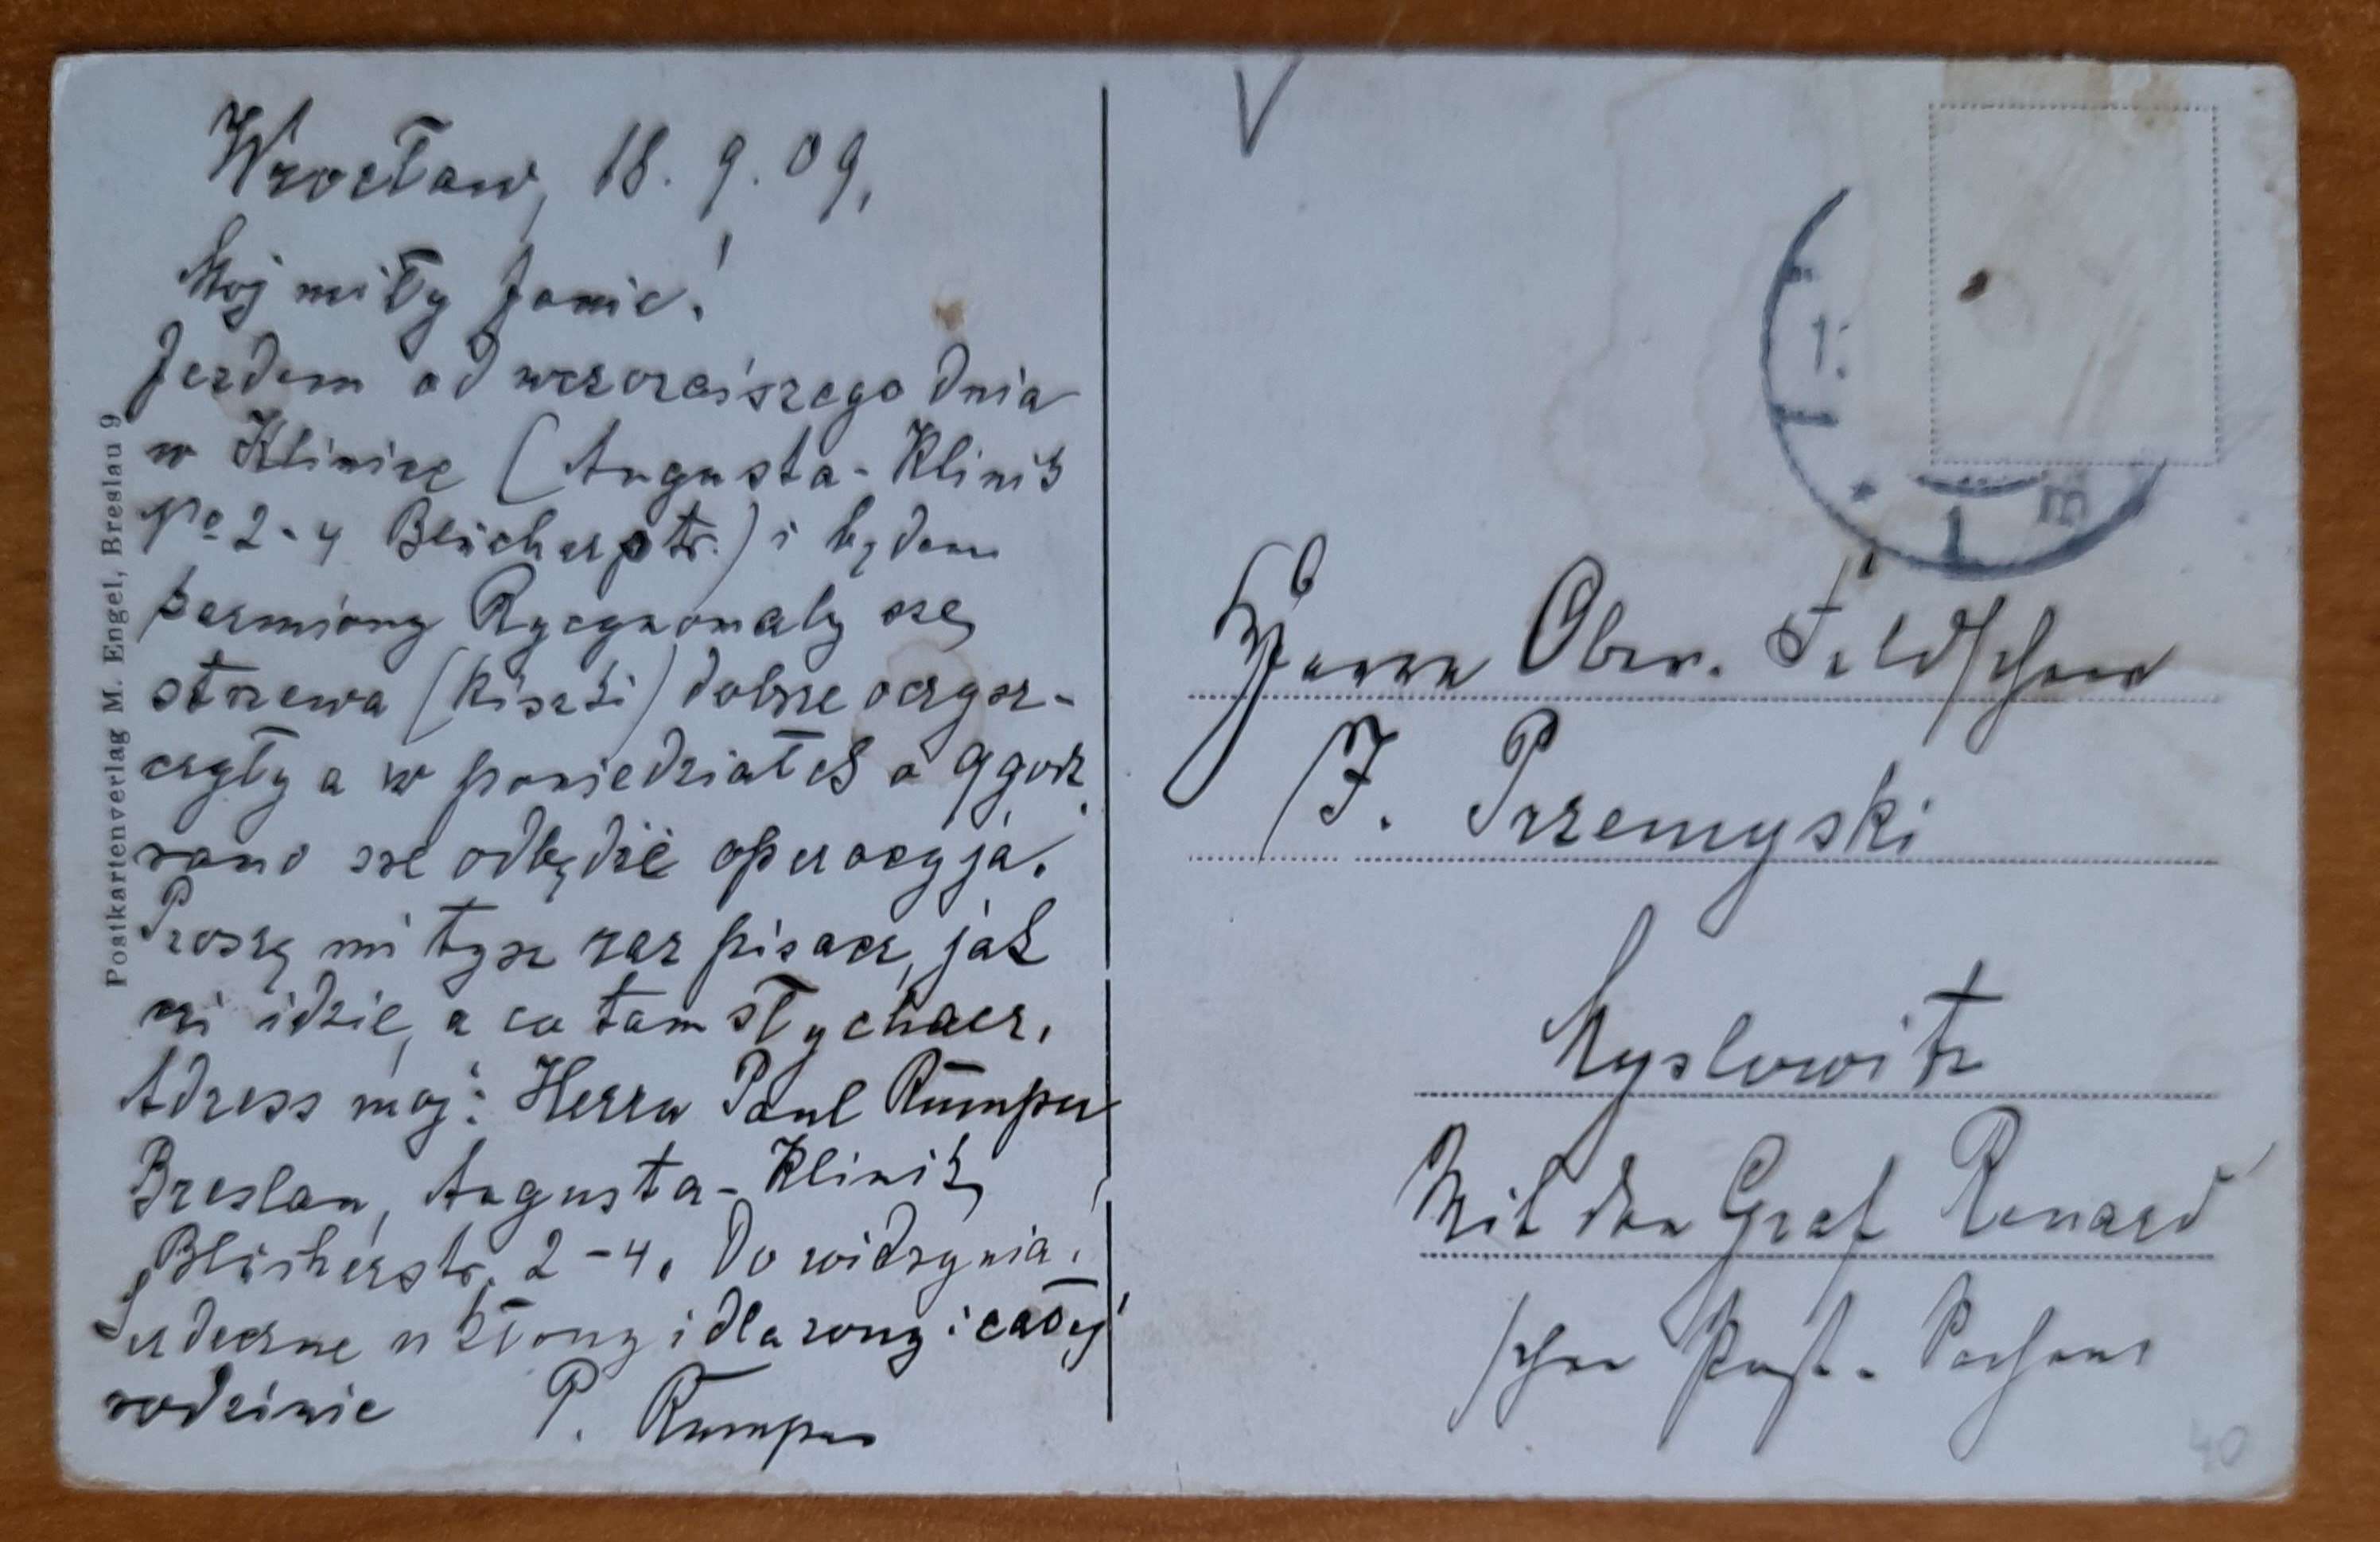 Wrocław, 18. 9. 09,
Moj miły Janie!
Jezdem od wczoraiszego dnia
w Klinice (Augusta-Klinik
No 2-4 Blücherstr.) i będem
karmiony Rycynom aby sze
strzewa (Kiszki) dobrze oczysz-
czyły a w poniedziałek o 9 godz.
rano sze odbędzie operacyja.
Proszę mi tysz raz pisacz, jak
czi idzie, a co tam słychacz.
Adress moj: Herrn Paul Rumpel
Breslau, Augusta-Klinik,
Blücherstr. 2-4. Do widzynia.
Serdeczne ukłony i dla zony i całej
rodzinie P. Rumpel
Postkartenverlag M. Engel, Breslau 9
Herrn Ober. Feldscheer
J. Przemyski
Myslowitz
Mit den Graf Renard
schen
40